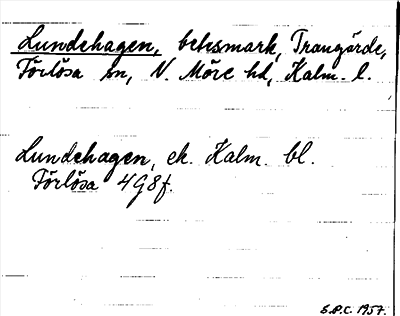 Lundehagen, betesmark, Trangärde,
Förlösa sn, N. Möre hd, Kalm. l.
Lundehagen, ek. Kalm. bl.
Förlösa 4G8f.
S.P.C. 1957.